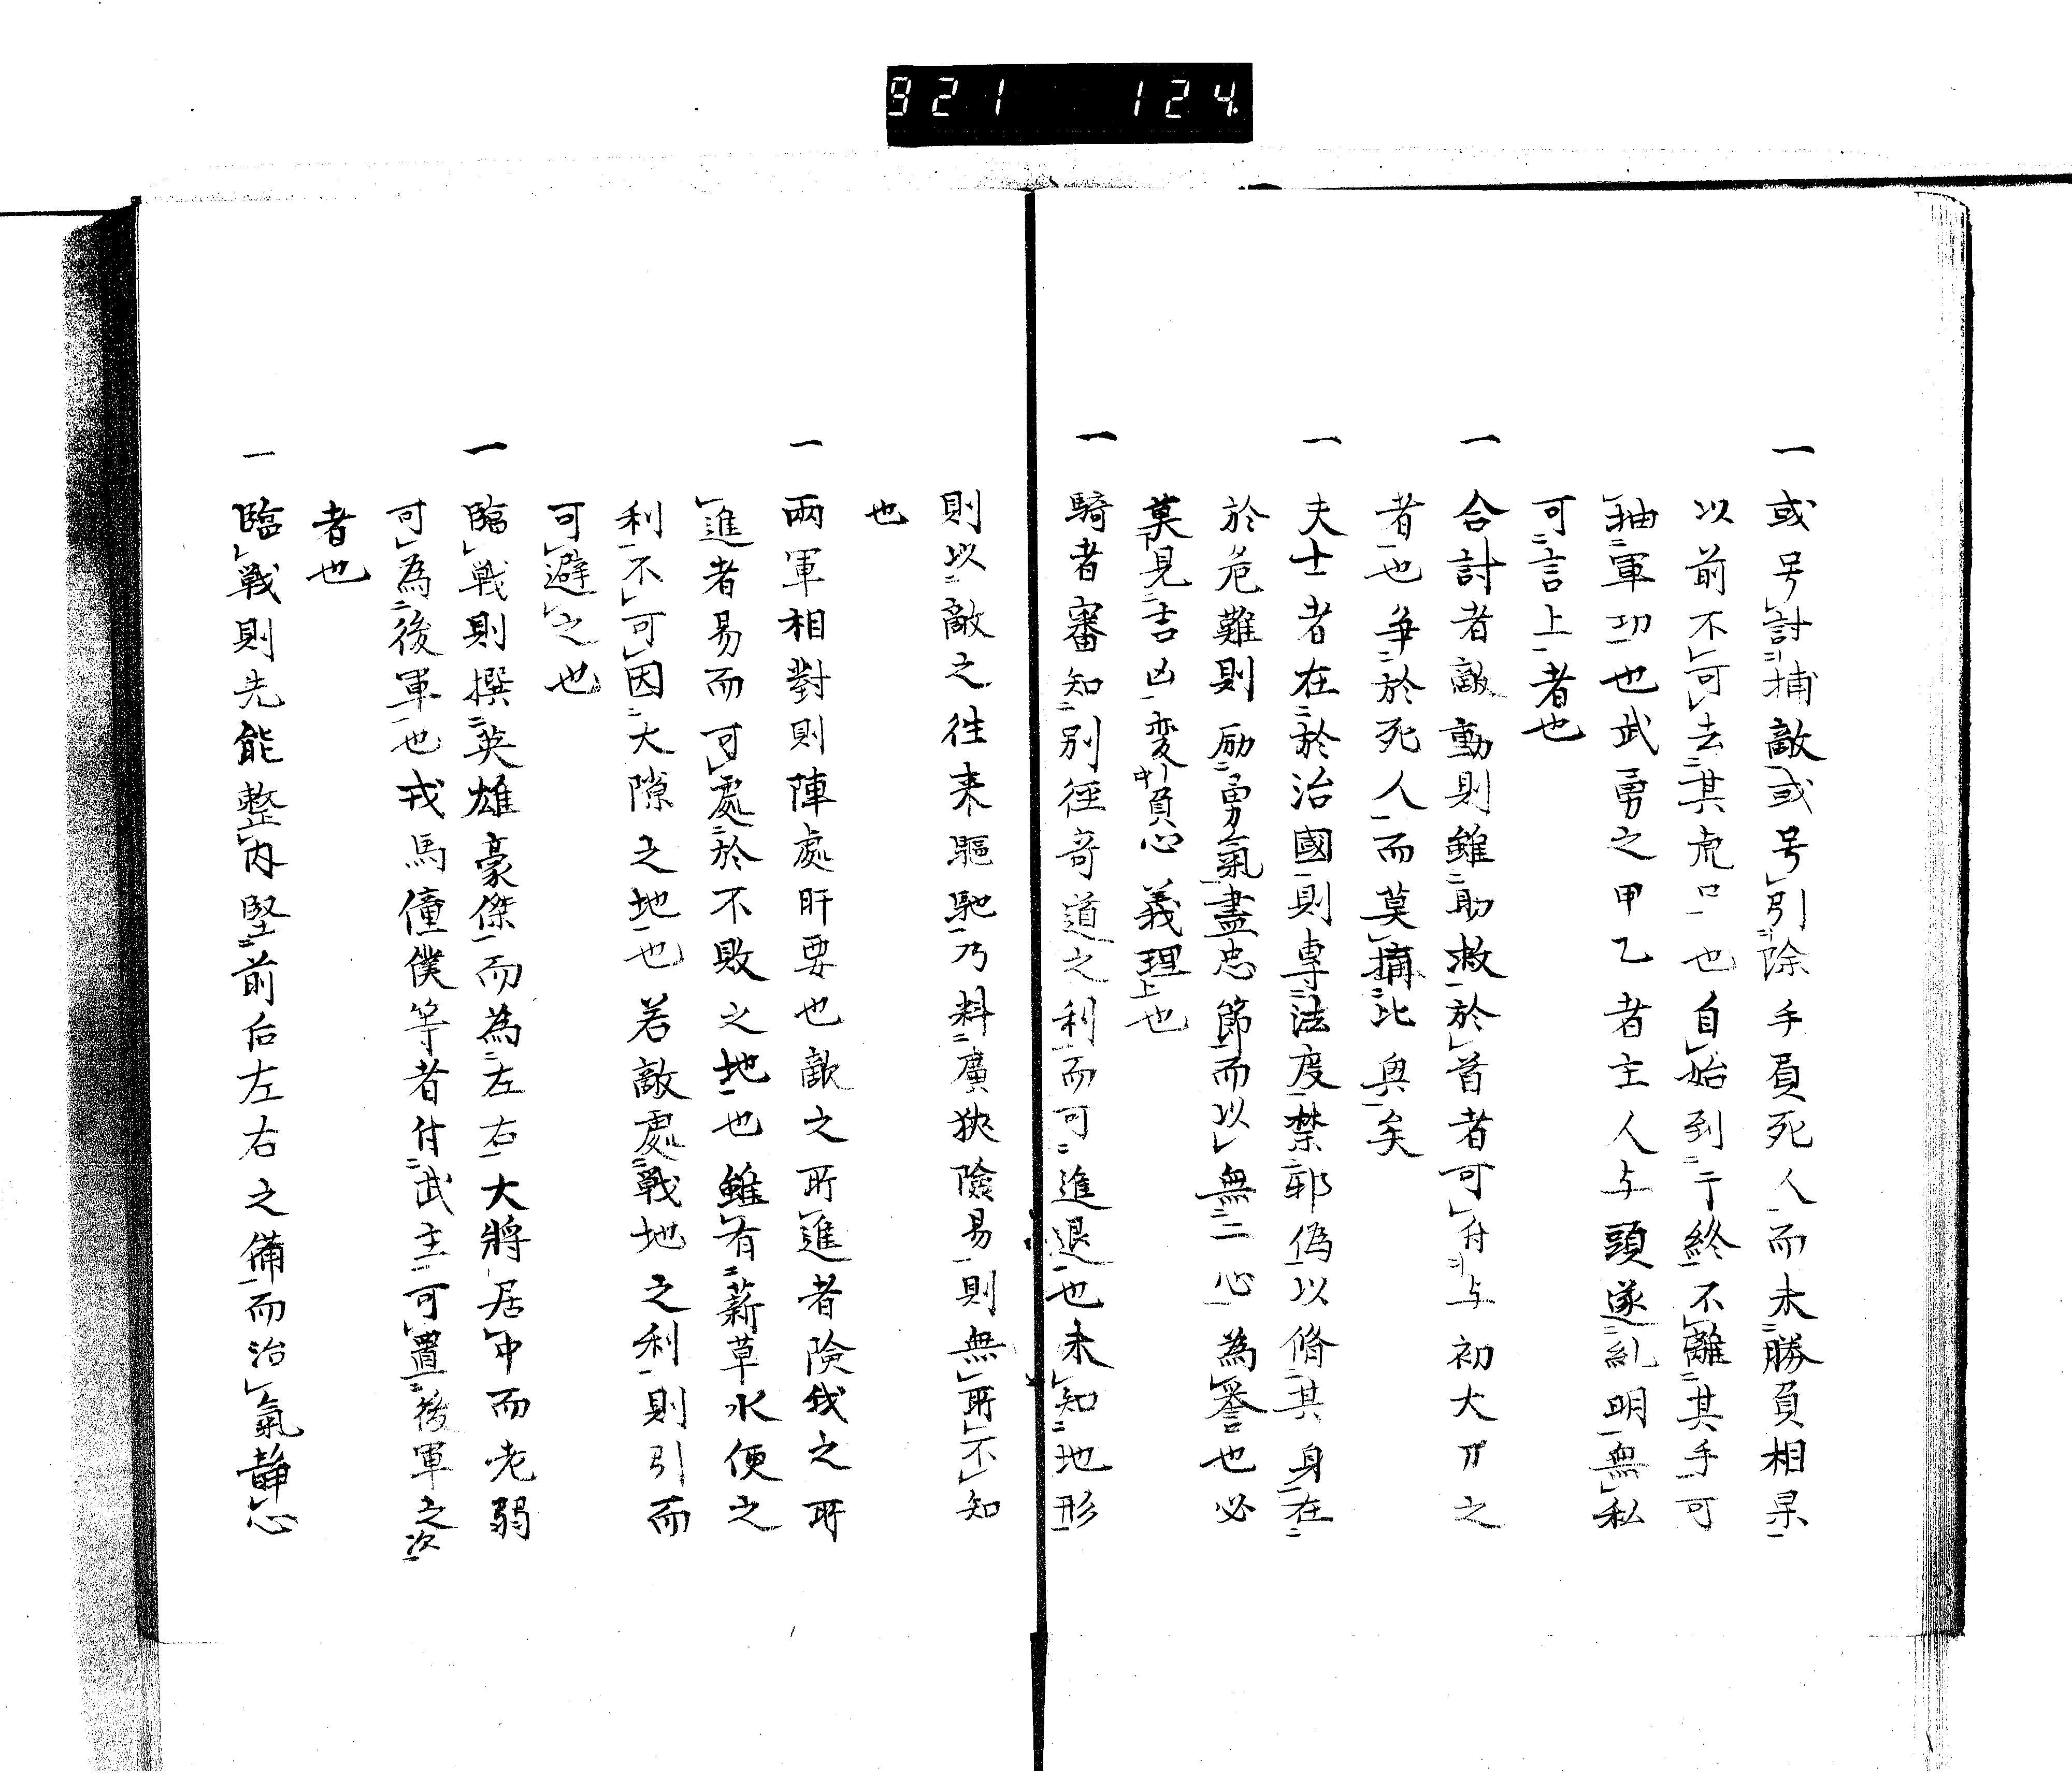 921 124
一 或号討捕敵或号引除手負死人而未勝負相果
以前不可去其虎口也自始到于終不離其手可
抽軍功也武勇之甲乙者主人与頭遂糺明無私
可言上者也
一 合討者敵動則雖助救於首者可付与初太刀之
者也争於死人而莫痛比興矣
一 夫士者在於治國則専法度禁邪偽以脩其身在
於危難則励勇氣盡忠節而以無二心為誉也必
莫見吉凶変負心義理也
一 騎者審知別徑奇道之利而可進退也未知地形
則以敵之往来驅馳乃料廣狹險易則無所不知
也
一 兩軍相對則陣處肝要也敵之所進者険我之所
進者易而可處於不敗之地也雖有薪草水便之
利不可因大隙之地也若敵處戰地之利則引而
可避之也
一 臨戦則撰英雄豪傑而為左右大將居中而老弱
可為後軍也戎馬僮僕等者付武主可置後軍之次
者也
一 臨戦則先能整内堅前后左右之備而治氣静心